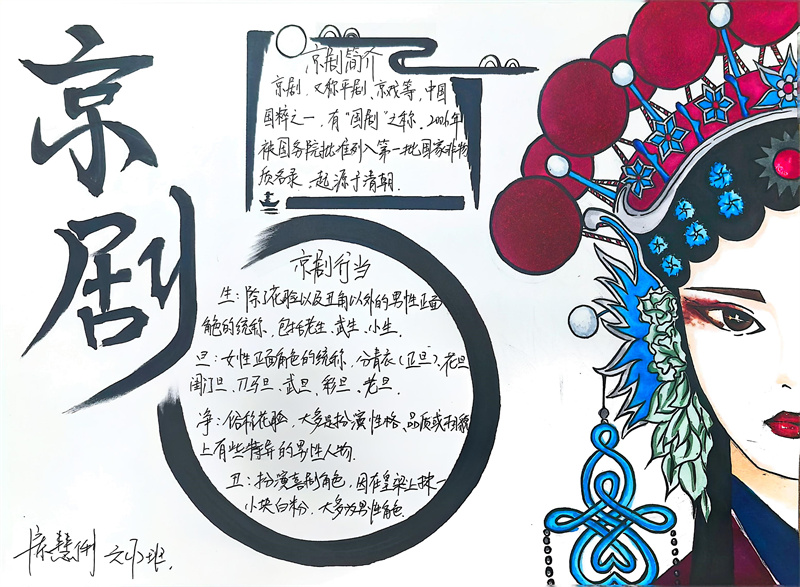 京剧
京剧简介
京剧，又称平剧、京戏等，中国
国粹之一，有“国剧”之称，2006年
被国务院批准列入第一批国家非物
质名录，起源于清朝.
京剧行当
生：除了花脸以及丑角以外的男性正面
角色的统称，包括老生、武生、小生.
旦：女性正面角色的统称，分青衣（正旦）、花旦
闺门旦、刀马旦、武旦、彩旦、老旦.
净：俗称花脸，大多是扮演性格、品质或相貌
上有些特异的男性人物.
丑：扮演喜剧角色，因在鼻梁上抹一
小块白粉，大多为男性角色.
慧
班.